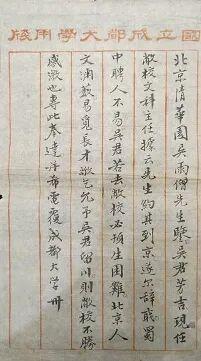 國立成都大學用牋
北京清華園吳雨僧先生鑒吳君芳吉現任
敝校文科主任據云先生約其到京遂尔辭職蜀
中聘人不易吳君若去敝校必頓生困難北京人
文淵藪易覓長才敬乞允予吳君留川則敝校不勝
感激也專此奉達并希電覆成都大學